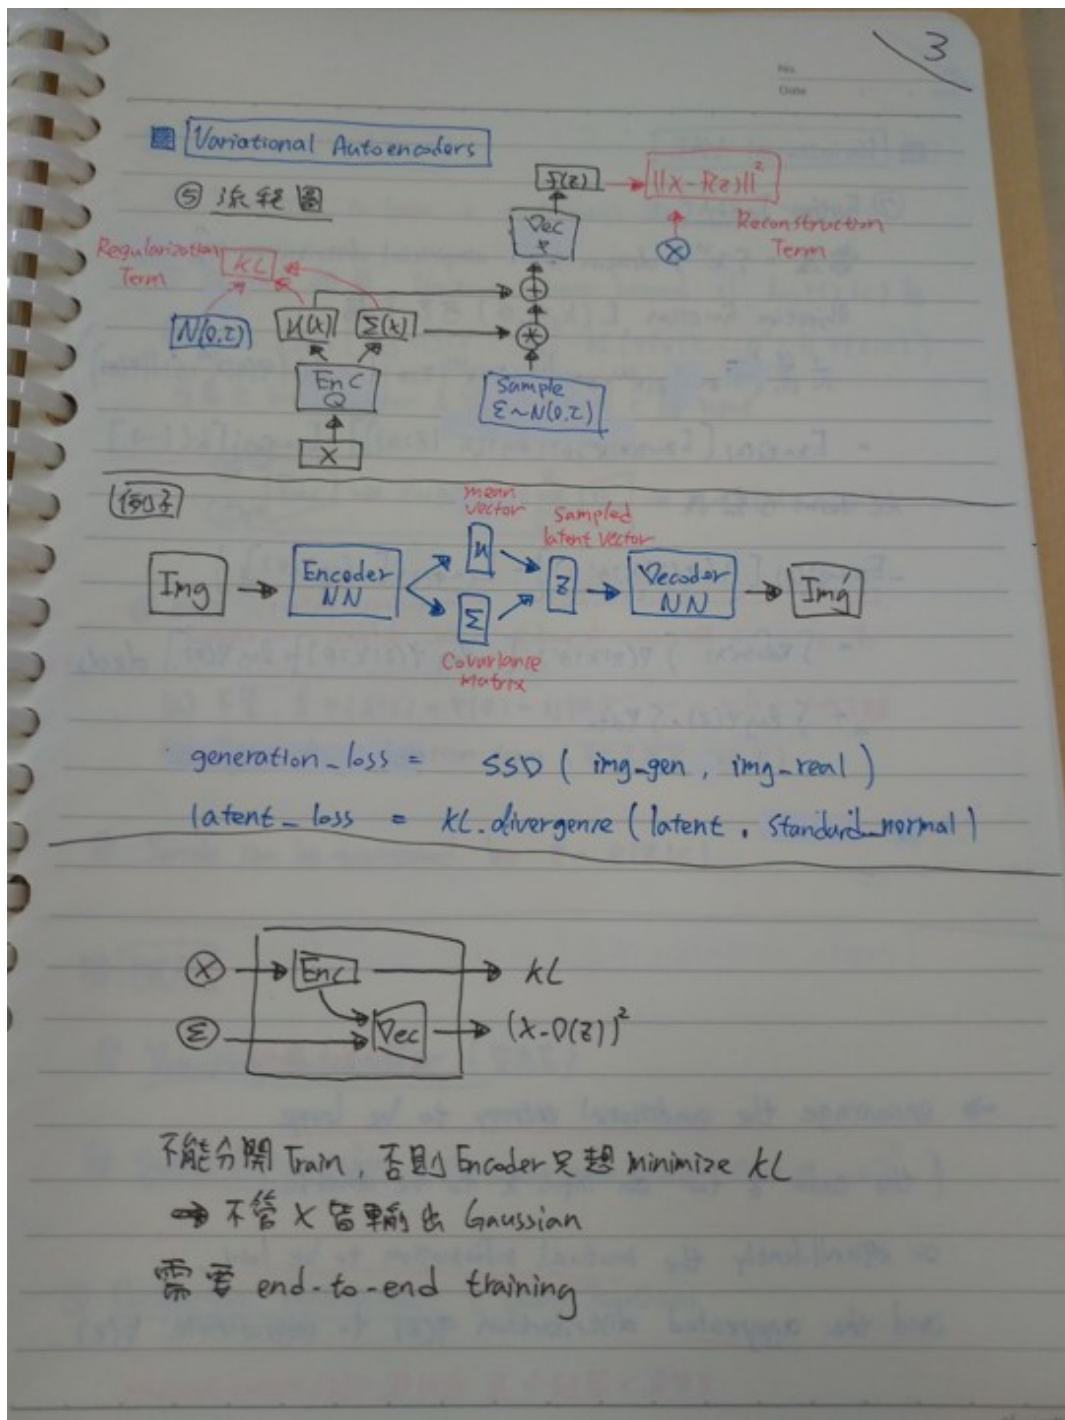 3
No.
Date
Variational Autoencoders
⑤ 流程圖
f(z)
||X-f(z)||²
Dec
P
Reconstruction
Term
X
Regularization
Term
KL
+
N(0,I)
μ(X)
Σ(X)
*
Enc
Q
Sample
ε~N(0,I)
X
例子
mean
vector
Sampled
latent vector
Img
Encoder
NN
μ
Σ
z
Decoder
NN
Img'
Covariance
Matrix
generation_loss = SSD ( img_gen , img_real )
latent_loss = KL.divergence ( latent , standard_normal )
X
Enc
KL
Σ
Dec
(X-D(z))²
不能分開 Train, 否則 Encoder 只想 minimize KL
⇒ 不管 X 皆輸出 Gaussian
需要 end-to-end training